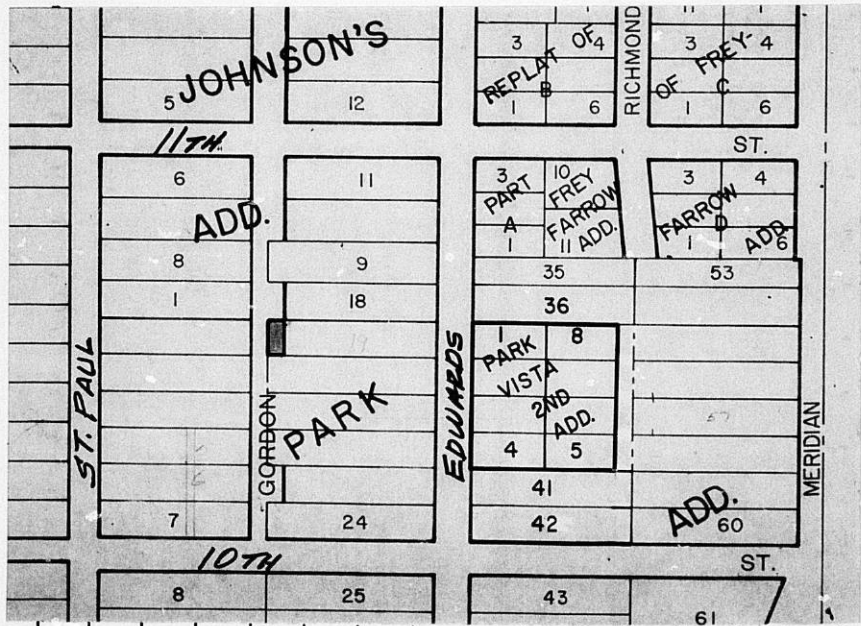 JOHNSON'S
5
12
3
4
REPLAT OF
B
1
6
RICHMOND
3
4
OF FREY-
C
1
6
11TH
ST.
6
11
ADD.
8
9
1
18
19
3
10
PART
FREY
FARROW
A
ADD.
1
11
3
4
FARROW
D
ADD.
1
6
35
53
36
1
8
PARK
VISTA
2ND
ADD.
4
5
57
ST. PAUL
GORDON
PARK
EDWARDS
MERIDIAN
41
ADD.
7
24
42
60
10TH
ST.
8
25
43
61